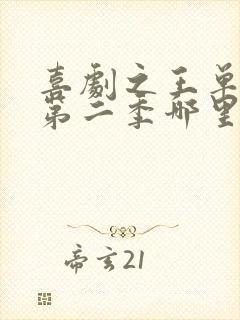 喜劇之王单
第二季哪里
帝玄21